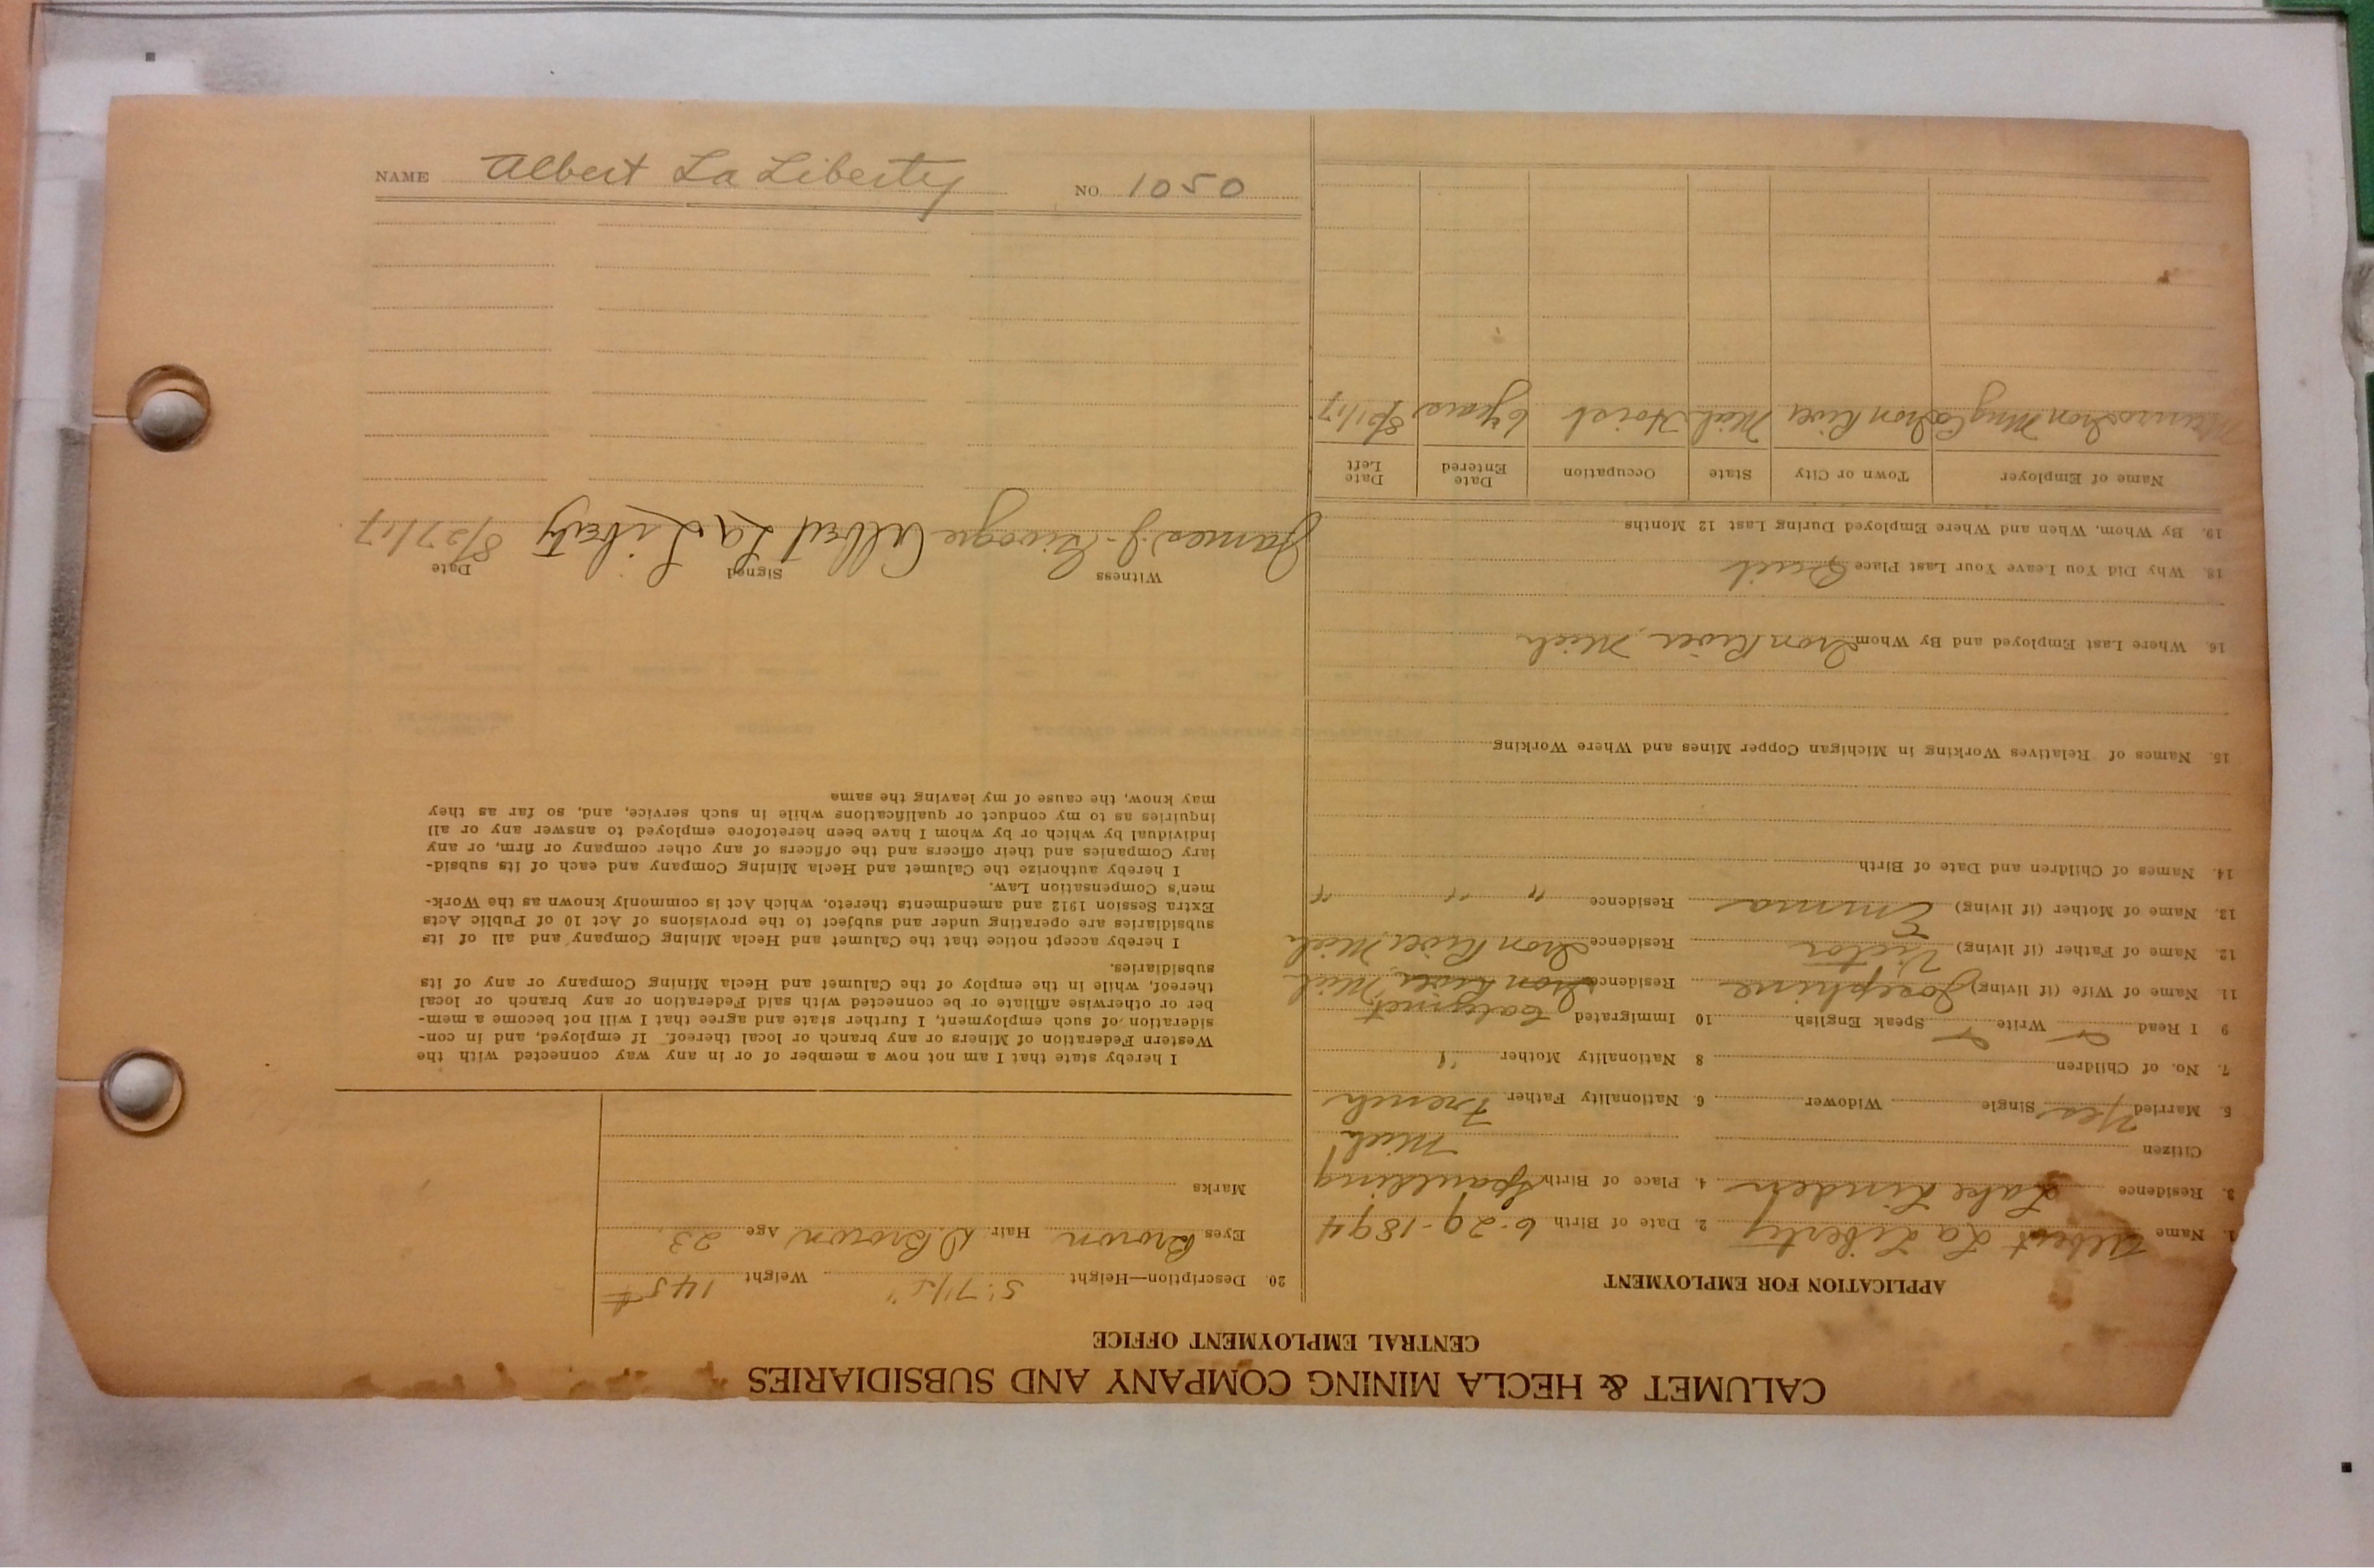 CALUMET & HECLA MINING COMPANY AND SUBSIDIARIES
CENTRAL EMPLOYMENT OFFICE
APPLICATION FOR EMPLOYMENT
1. Name Albert La Liberty 2. Date of Birth 6-29-1894
3. Residence Lake Linden 4. Place of Birth Spaulding
Citizen Mich
5. Married Yes Single Widower 6. Nationality Father French
7. No. of Children 8 Nationality Mother "
9 I Read Write Speak English 10 Immigrated
11. Name of Wife (if living) Josephine Residence Iron River, Mich Calumet
12. Name of Father (if living) Victor Residence Iron River, Mich
13. Name of Mother (if living) Emma Residence " " "
14. Names of Children and Date of Birth
15. Names of Relatives Working in Michigan Copper Mines and Where Working
16. Where Last Employed and By Whom Iron River, Mich
18. Why Did You Leave Your Last Place Quit
19. By Whom, When and Where Employed During Last 12 Months
Name of Employer Town or City State Occupation Date Entered Date Left
Iron Mng Co Iron River Mich Hoist 6 years 8/21/17
20. Description—Height 5' 7 1/2" Weight 145#
Eyes Brown Hair D. Brown Age 23
Marks
I hereby state that I am not now a member of or in any way connected with the
Western Federation of Miners or any branch or local thereof. If employed, and in con-
sideration of such employment, I further state and agree that I will not become a mem-
ber or otherwise affiliate or be connected with said Federation or any branch or local
thereof, while in the employ of the Calumet and Hecla Mining Company or any of its
subsidiaries.
I hereby accept notice that the Calumet and Hecla Mining Company and all of its
subsidiaries are operating under and subject to the provisions of Act 10 of Public Acts
Extra Session 1912 and amendments thereto, which Act is commonly known as the Work-
men's Compensation Law.
I hereby authorize the Calumet and Hecla Mining Company and each of its subsid-
iary Companies and their officers and the officers of any other company or firm, or any
individual by which or by whom I have been heretofore employed to answer any or all
inquiries as to my conduct or qualifications while in such service, and, so far as they
may know, the cause of my leaving the same
Witness Signed Date
James J. Albert La Liberty 8/27/17
NAME Albert La Liberty NO. 1050